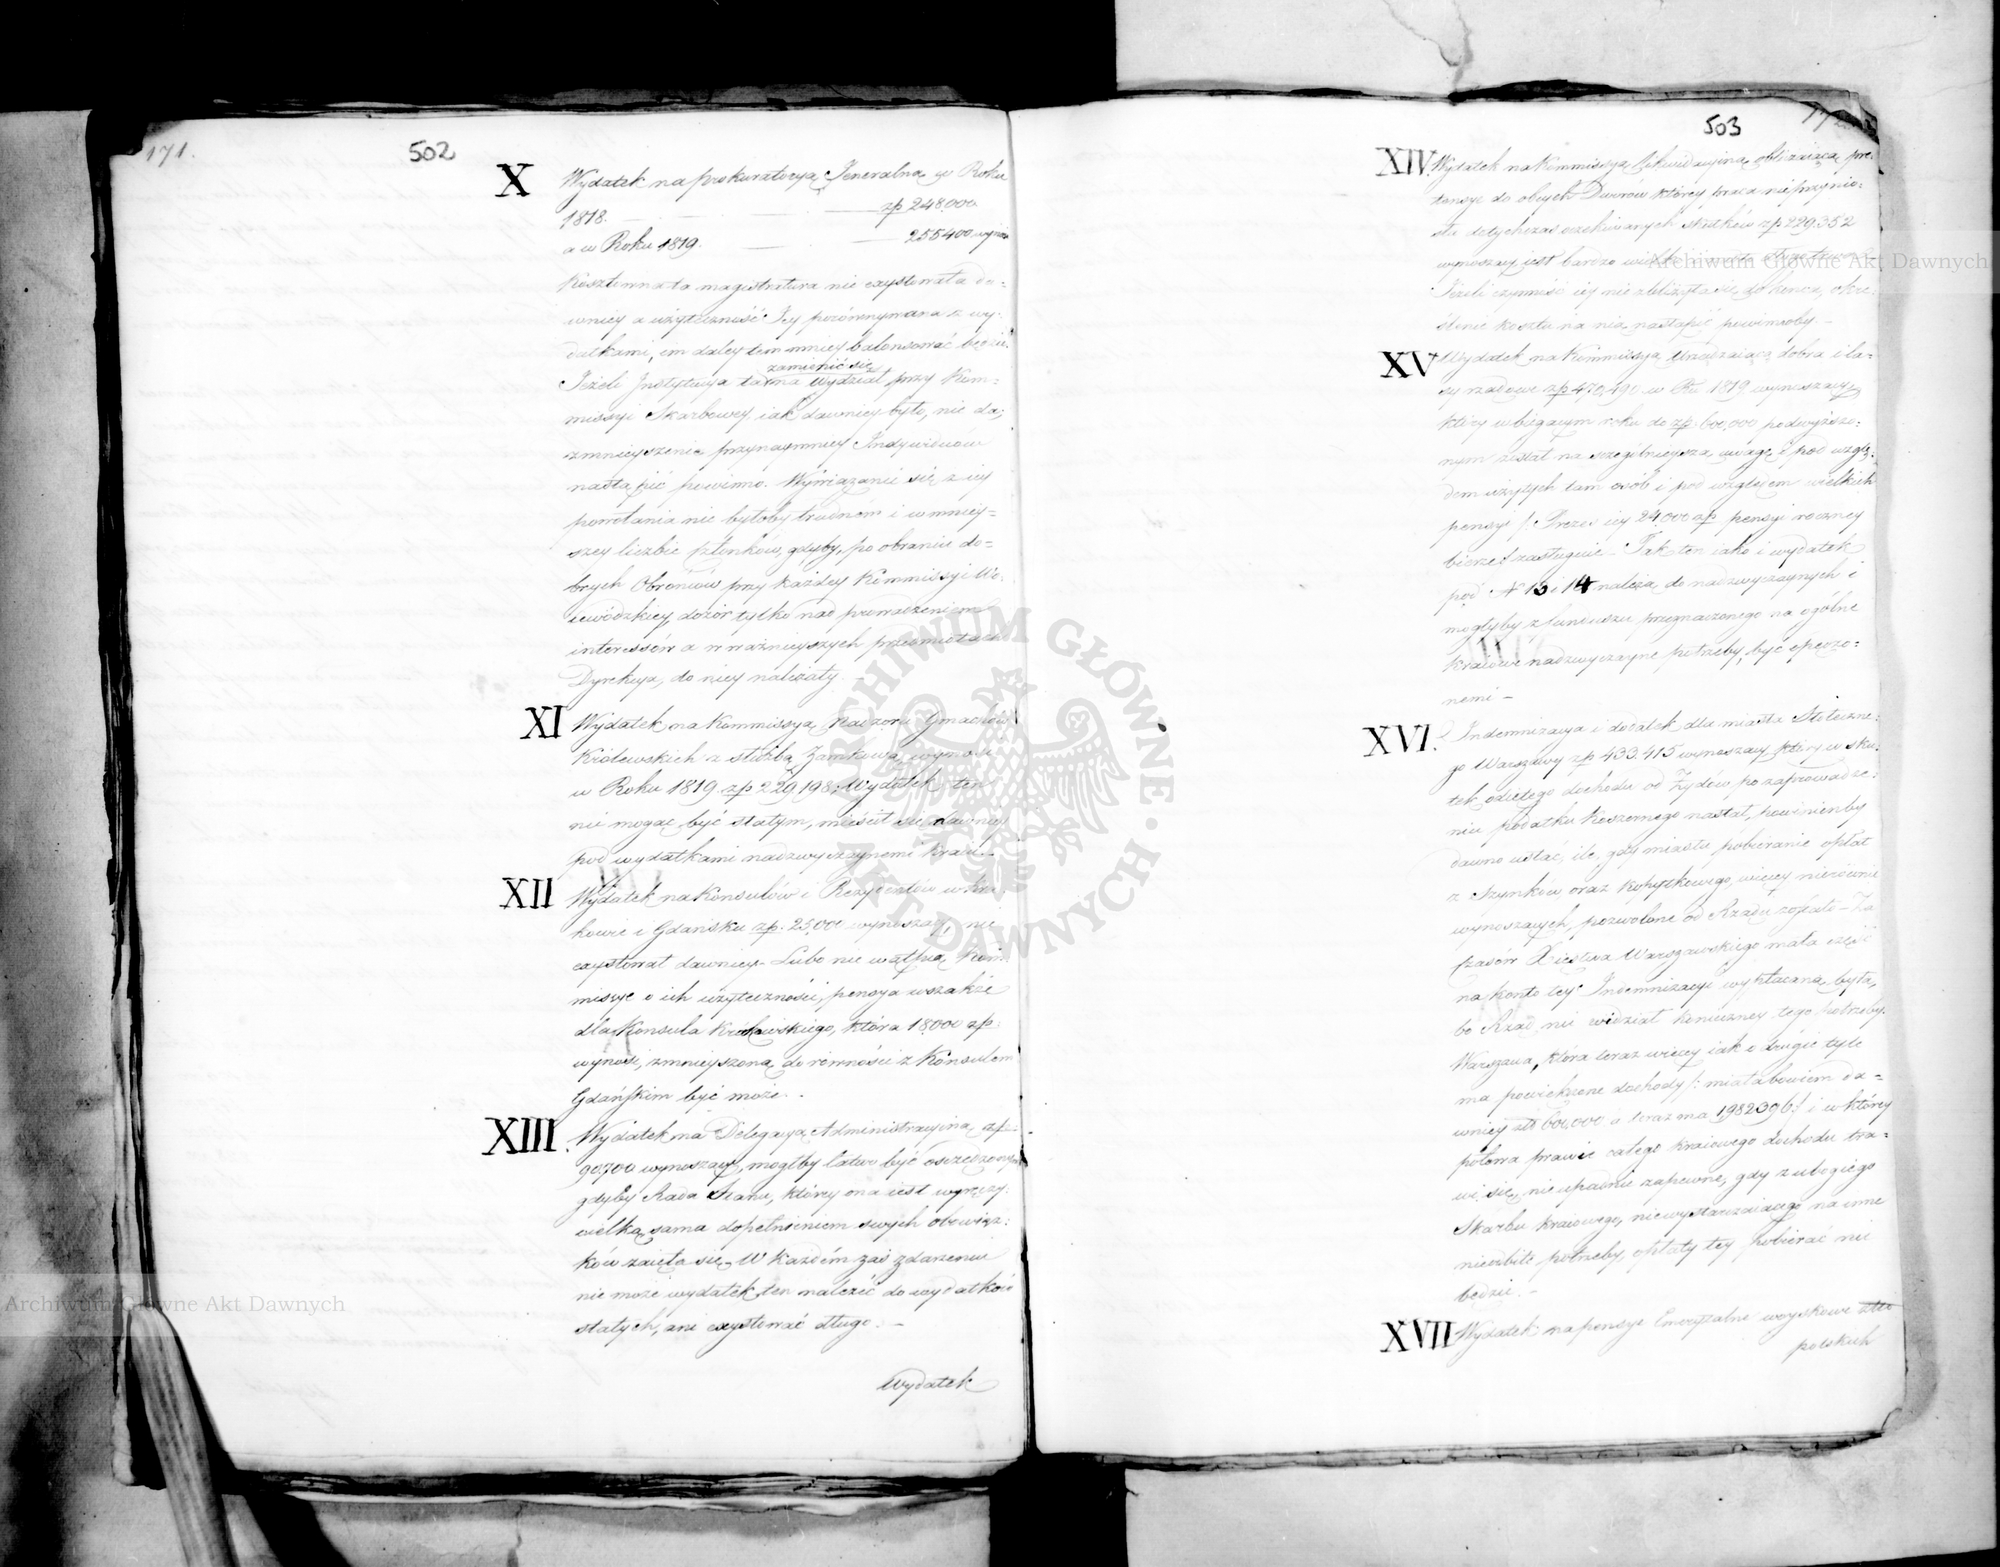 171.
502
X Wydatek na prokuratoryą Jeneralną w Roku
1818. — — — zp 248.000
a w Roku 1819. — — 255400 wynosi
Kosztowna ta magistratura nie exystowała da-
wniey a użyteczność Jey porównywana z wy-
datkami, em daley tem mniey balansować będzie.
zamienić się
Jeżeli Instytucya ta na Wydział przy Kom-
missyi Skarbowey iak dawniey było, nie da,
zmnieyszenie przynaymniey Indywiduów
nastąpić powinno. Wywiązanie się z iey
powołania nie byłoby trudnem i w mniey-
szey liczbie członków, gdyby, po obraniu do-
brych Obrońców przy każdey Kommissyi Wo-
iewódzkiey, dozór tylko nad prowadzeniem
interessów a w ważnieyszych przedmiotach
Dyrekcya, do niey należały. —
XI Wydatek na Kommissyą Nadzoru Gmachów
Królewskich z służbą Zamkową, wynosi
w Roku 1819. zp 229,198. Wydatek ten
nie mogąc być stałym, mieścił się dawniey
pod wydatkami nadzwyczaynemi kraiu. —
XII Wydatek na Konsulów i Rezydentów w Kra-
kowie i Gdańsku zp. 25,000 wynoszący, nie
exystował dawniey. Lubo nie wątpią Kom-
missye o ich użyteczności, pensya wszakże
dla Konsula Krakowskiego, która 18000 zp.
wynosi, zmnieyszoną do równości z Konsulem
Gdańskim być może.
XIII. Wydatek na Delegacyą Administracyiną zp.
90,700 wynoszący, mogłby łatwo być oszczędzonym
gdyby Rada Stanu, którey ona iest wyręczy-
cielką, sama dopełnieniem swych obowiąz-
ków zaięła się. W każdém zaś zdarzeniu
nie może wydatek ten należeć do wydatków
stałych, ani exystować długo. —
Wydatek
503
172
XIV Wydatek na Kommissyą Likwidacyiną obliczaiącą pre-
tensye do obcych Dworów którey praca nie przynio-
sła dotychczas oczekiwanych skutków zp 229.352
wynoszący, iest bardzo
Jeżeli czynność iey nie zbliżyła się do końca, okre-
ślenie kosztu na nią nastąpić powinnoby. —
XV Wydatek na Kommissyą Urządzaiącą dobra i la-
sy rządowe zp 470,490 w Rk. 1819 wynoszący,
który w biegącym roku do zp. 600,000 podwyższo-
nym został na szczególnieyszą uwagę i pod wzglę-
dem użytych tam osób i pod względem wielkich
pensyi /: Prezes iey 24,000 zp pensyi roczney
bierze :/ zasługuie. — Tak ten iako i wydatek
pod N 13 i 14 należą do nadzwyczaynych i
mogłyby z funduszu przeznaczonego na ogólne
kraiowe nadzwyczayne potrzeby, być opędzo-
nemi —
XVI. Indemnizacya i dodatek dla miasta Stołeczne-
go Warszawy zp 433.415 wynoszący, który w sku-
tek odiętego dochodu od Żydów po zaprowadze-
niu podatku koszernego nastał, powinienby
dawno ustać, ile, gdy miastu pobieranie opłat
z Szynków, oraz kopytkowego, więcey nierównie
wynoszących, pozwolone od Rządu zostało — Za
czasów Xięstwa Warszawskiego mała część
na konto tey Indemnizacyi wypłacaną była,
bo Rząd nie widział konieczney tego potrzeby.
Warszawa, która teraz więcey iak o drugie tyle
ma powiększone dochody /: miała bowiem da-
wniey zł 600,000 a teraz ma 1982396 :/ i w którey
połowa prawie całego kraiowego dochodu tra-
wi się, nie upadnie zapewne, gdy z ubogiego
Skarbu kraiowego, niewystarczaiącego na inne
nieodbite potrzeby, opłaty tey pobierać nie
będzie. —
XVII Wydatek na pensye Emerytalne woyskowe
polskich
Archiwum Główne Akt Dawnych
Archiwum Główne Akt Dawnych
ARCHIWUM GŁÓWNE AKT DAWNYCH